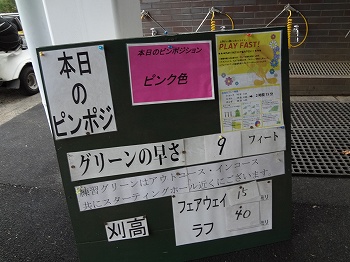 本日のピンポジ
本日のピンポジション
ピンク色
PLAY FAST!
グリーンの早さ 9 フィート
練習グリーンはアウトコース・インコース
共にスターティングホール近くにございます。
刈高
フェアウェイ 15 ミリ
ラフ 40 ミリ